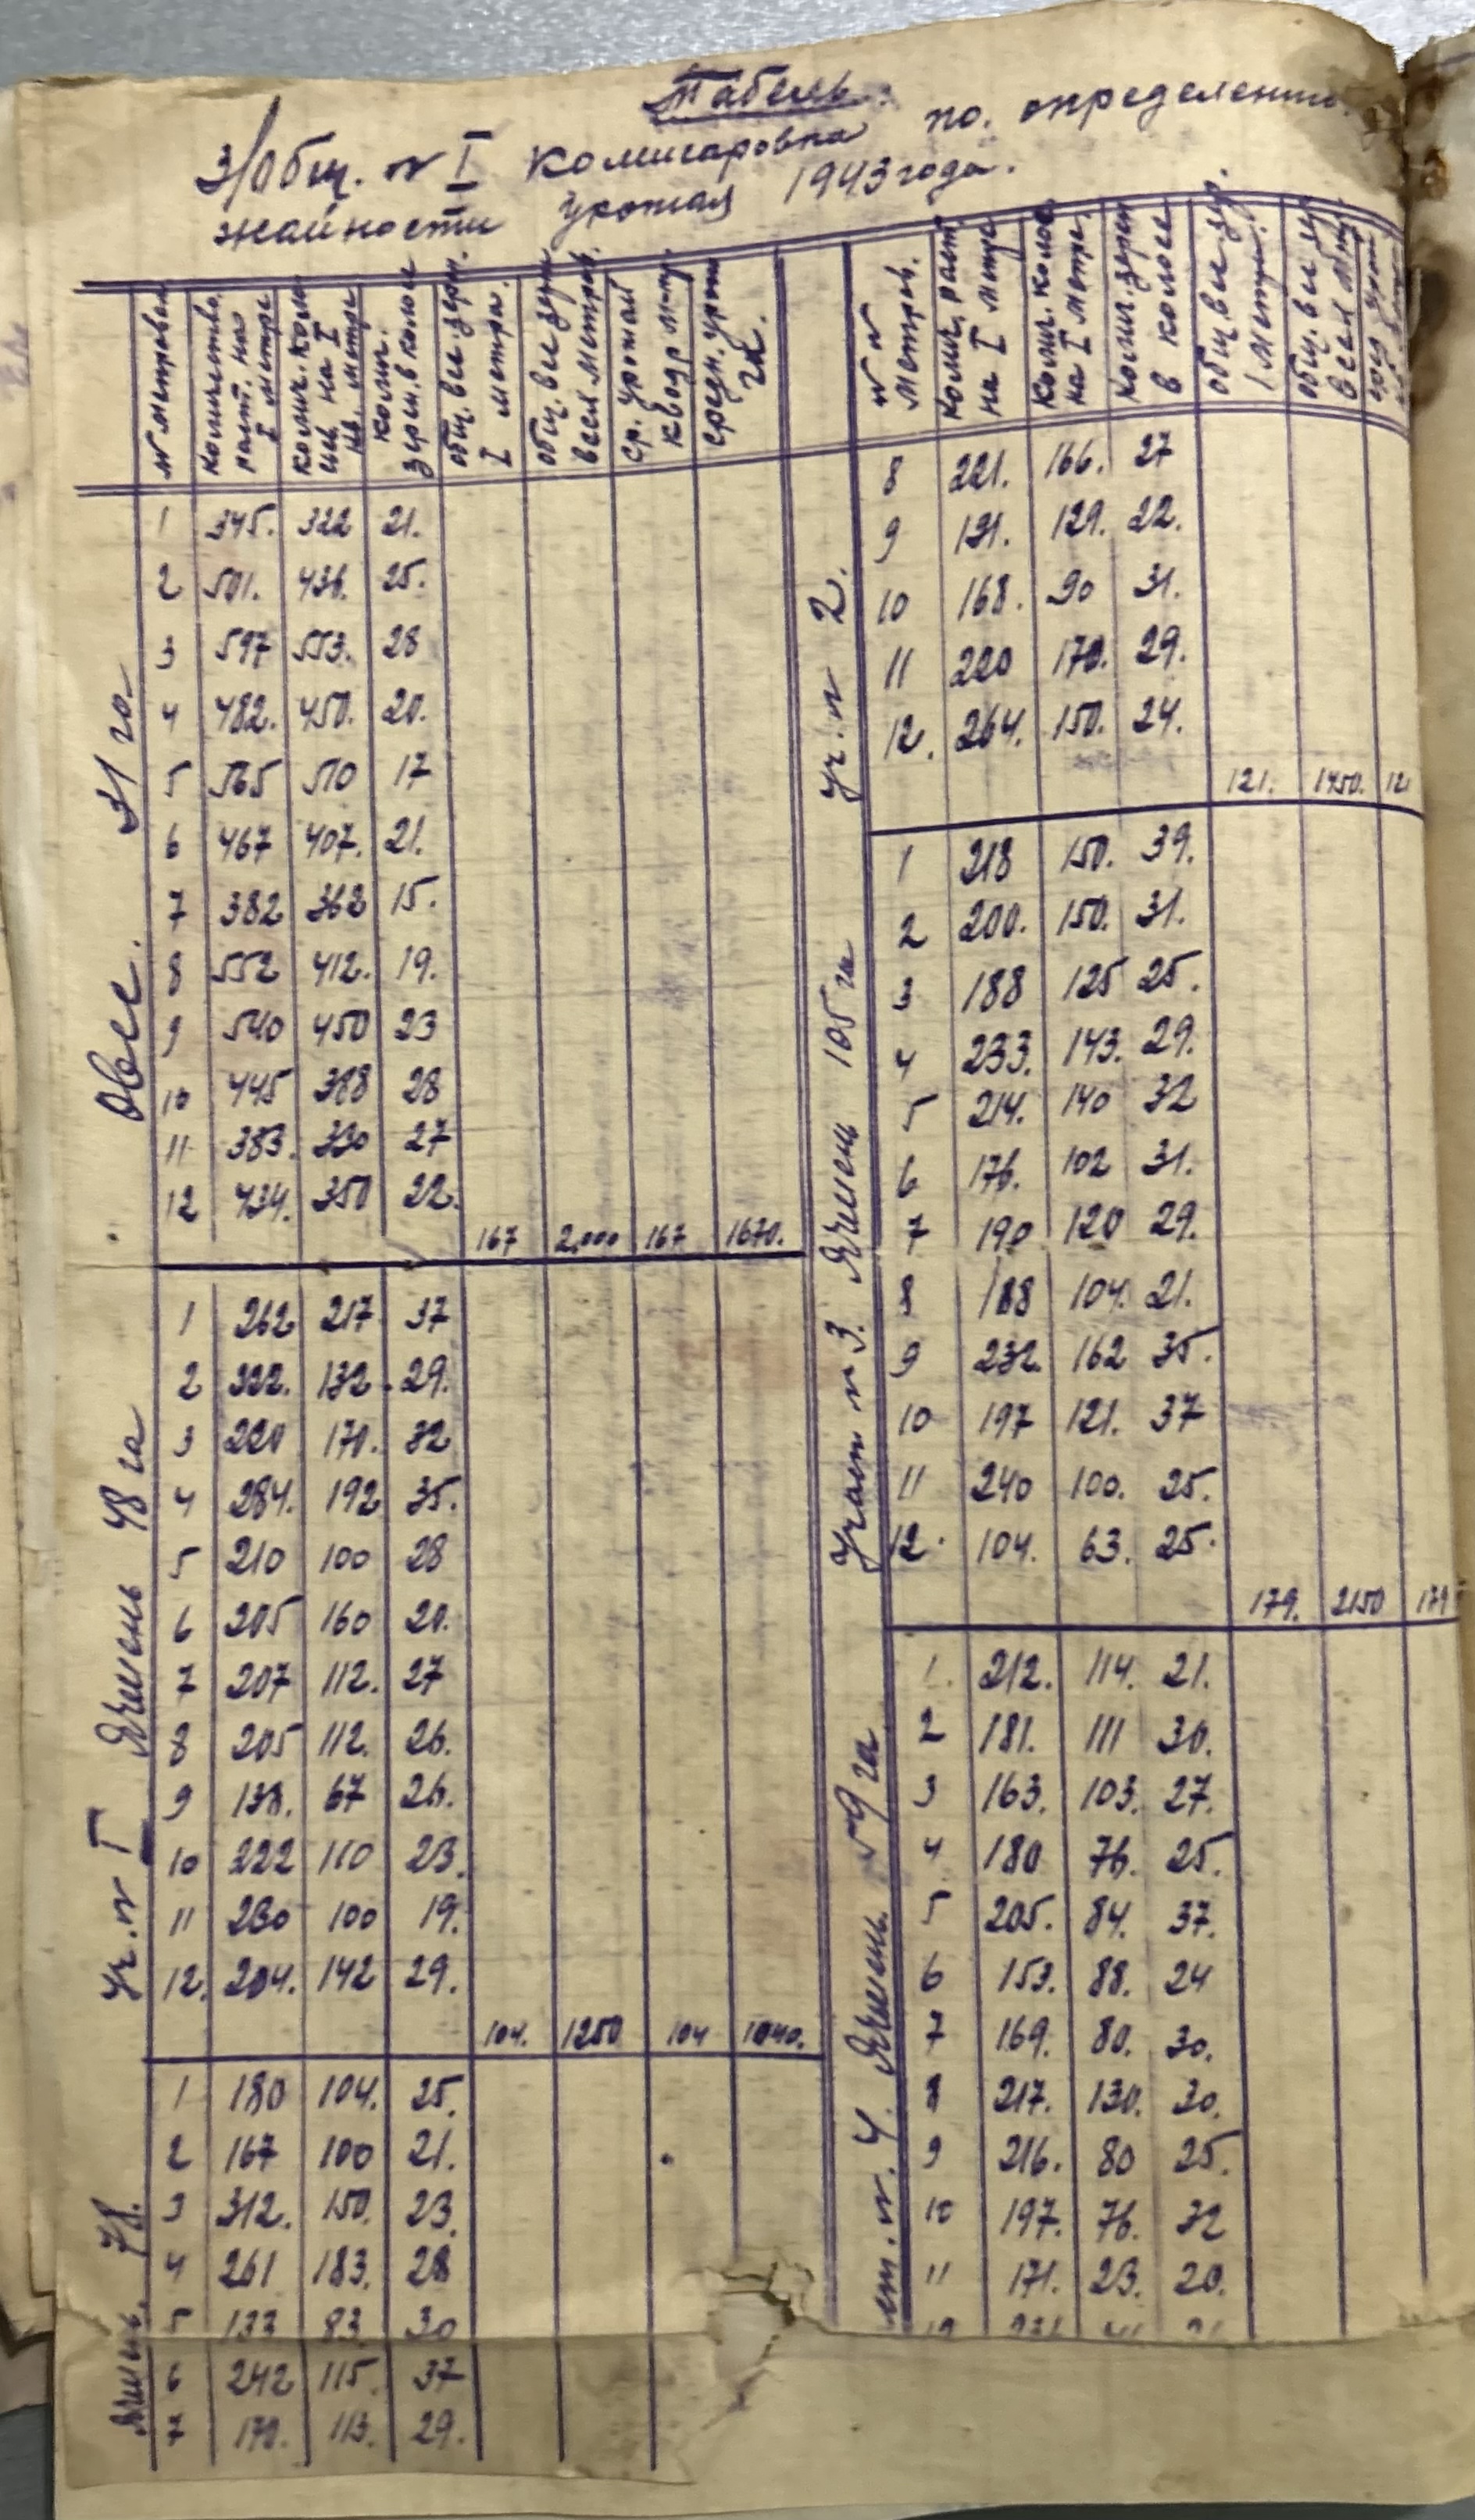 Табель
З/Общ. № I Комисаровка по. определению
жайности урожая 1943 года.
№ метровки | количество раст. на I метре | колич. колосьев на I кв. метре | колич. зерн. в колосе | общ. вес. зерн. I метра. | общ. вес зерн всех метров. | ср. урожай квадр метр. | средн. урож га.
Овес. 31 га.
1 345. 322 21.
2 501. 436. 25.
3 597 553. 28
4 482. 450. 20.
5 565 510 17
6 467 407. 21.
7 382 362 15.
8 552 412. 19.
9 540 450 23
10 445 388 28
11 383. 330 27
12 434. 350 22.
167 2,000 167 1670.
уч. № I Ячмень 48 га
1 262 217 37
2 322. 132. 29.
3 220 170. 32
4 284. 192 35.
5 210 100 28
6 205 160 20.
7 207 112. 27
8 205 112. 26.
9 138. 67 26.
10 222 110 23.
11 230 100 19.
12. 204. 142 29.
104. 1250 104 1040.
Ячмень. 78.
1 180 104. 25.
2 167 100 21.
3 312. 150. 23.
4 261 183. 28
5 133 83. 30
6 242 115. 37
7 170. 113. 29.
№ № метров. | колич. раст на I метре | колич. колос на I метре. | колич. зерен в колосе | общ вес зер. 1 метра. | общ. вес зер всех метр
уч. № 2.
8 221. 166. 27
9 191. 129. 22.
10 168. 90 31.
11 220 170. 29.
12. 264. 150. 24.
121. 1450. 12
Участ № 3. Ячмень 105 га
1 218 150. 39.
2 200. 150. 31.
3 188 125 25.
4 233. 143. 29.
5 214. 140 32
6 176. 102 31.
7 190 120 29.
8 188 104. 21.
9 232. 162 35.
10 197 121. 37
11 240 100. 25.
12. 104. 63. 25.
179. 2150 179
ст. №. 4. Ячмень. 59 га
1. 212. 114. 21.
2 181. 111 30.
3 163. 103. 27.
4 180 76. 25.
5 205. 84. 37.
6 153. 88. 24
7 169. 80. 30.
8 217. 130. 30.
9 216. 80 25.
10 197. 76. 32
11 171. 23. 20.